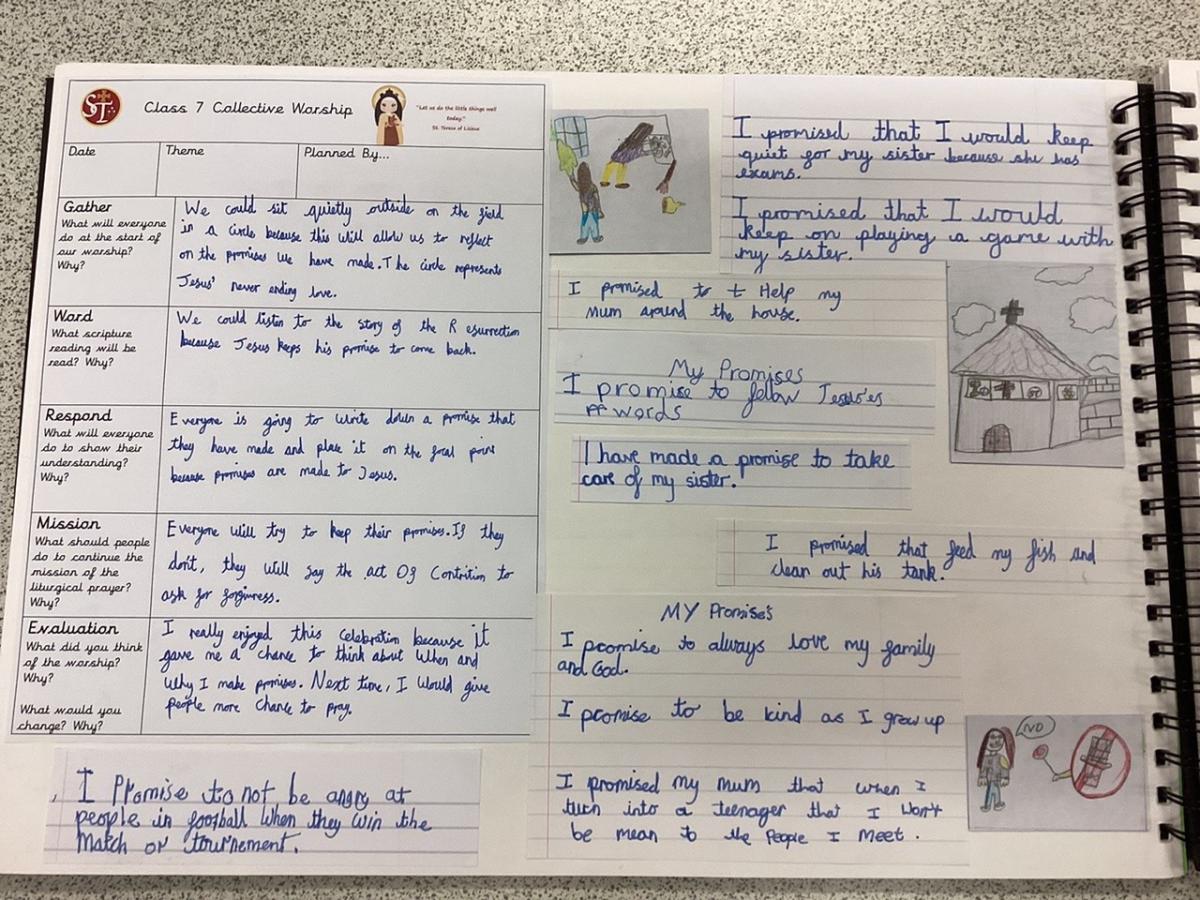 ST
Class 7 Collective Worship
"Let us do the little things well
today."
St. Terese of Lisieux
Date
Theme
Planned By...
Gather
What will everyone
do at the start of
our worship?
Why?
We could sit quietly outside on the field
in a circle because this will allow us to reflect
on the promises we have made. The circle represents
Jesus' never ending love.
Word
What scripture
reading will be
read? Why?
We could listen to the story of the Resurrection
because Jesus keeps his promise to come back.
Respond
What will everyone
do to show their
understanding?
Why?
Everyone is going to write down a promise that
they have made and place it on the focal point
because promises are made to Jesus.
Mission
What should people
do to continue the
mission of the
liturgical prayer?
Why?
Everyone will try to keep their promises. If they
don't, they will say the act Of Contrition to
ask for forgivness.
Evaluation
What did you think
of the worship?
Why?
What would you
change? Why?
I really enjoyed this celebration because it
gave me a chance to think about when and
why I make promises. Next time, I would give
people more chance to pray.
I Promise to not be angry at
people in football when they win the
Match or tournement.
I promised that I would keep
quiet for my sister because she has
exams.
I promised that I would
keep on playing a game with
my sister.
I promised to t Help my
Mum around the house.
My Promises
I promise to follow Jesus'es
words
I have made a promise to take
care of my sister.
I promised that feed my fish and
clean out his tank.
MY Promise's
I promise to always love my family
and God.
I promise to be kind as I grow up
I promised my mum that when I
turn into a teenager that I won't
be mean to the People I Meet.
NO